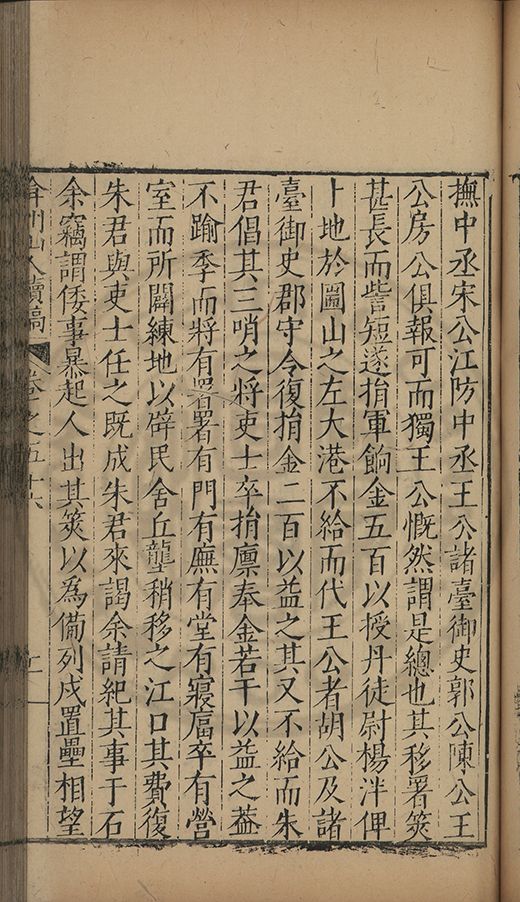 撫中丞宋公江防中丞王公諸臺御史郭公陳公王
公房公俱報可而獨王公慨然謂是總也其移署筴
甚長而訾短遂捐軍餉金五百以授丹徒尉楊泮俾
卜地於圌山之左大港不給而代王公者胡公及諸
臺御史郡守令復捐金二百以益之其又不給而朱
君倡其三哨之將吏士卒捐廪奉金若干以益之葢
不踰季而將有署署有門有廡有堂有寢偪卒有營
室而所闢練地以辟民舍丘壠稍移之江口其費復
朱君與吏士任之既成朱君來謁余請紀其事于石
余竊謂倭事暴起人出其筴以為備列戍置壘相望
弇州山人續稿 卷之五十六